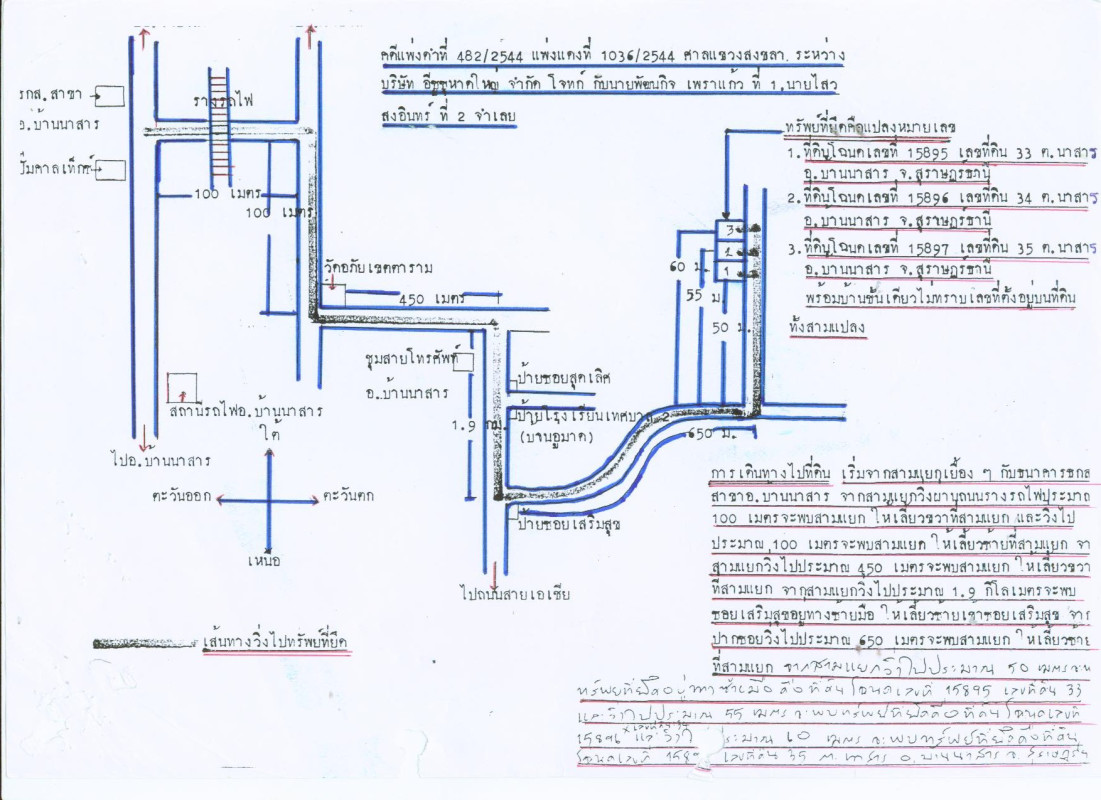 คดีแพ่งดำที่ 482/2544 แพ่งแดงที่ 1036/2544 ศาลแขวงสงขลา ระหว่าง
บริษัท อีซูซุหาดใหญ่ จำกัด โจทก์ กับนายพัฒนกิจ เพราแก้ว ที่ 1,นายไสว
สงอินทร์ ที่ 2 จำเลย
รกส. สาขา
อ.บ้านนาสาร
รางรถไฟ
ปั๊มคาลเท็กซ์
100 เมตร
100 เมตร
ทรัพย์ที่ยึดคือแปลงหมายเลข
1.ที่ดินโฉนดเลขที่ 15895 เลขที่ดิน 33 ต.นาสาร
อ.บ้านนาสาร จ.สุราษฎร์ธานี
2.ที่ดินโฉนดเลขที่ 15896 เลขที่ดิน 34 ต.นาสาร
อ.บ้านนาสาร จ.สุราษฎร์ธานี
3.ที่ดินโฉนดเลขที่ 15897 เลขที่ดิน 35 ต.นาสาร
อ.บ้านนาสาร จ.สุราษฎร์ธานี
พร้อมบ้านชั้นเดียวไม่ทราบเลขที่ตั้งอยู่บนที่ดิน
ทั้งสามแปลง
3
1
60 ม.
55 ม.
50 ม.
วัดอภัยเขตตาราม
450 เมตร
ชุมสายโทรศัพท์
อ.บ้านนาสาร
ป้ายซอยสุดเลิศ
ป้ายโรงเรียนเทศบาล 2
1.9 กม.
650 ม.
ป้ายซอยเสริมสุข
สถานีรถไฟอ.บ้านนาสาร
ใต้
ไปอ.บ้านนาสาร
ตะวันออก
ตะวันตก
เหนือ
ไปถนนสายเอเซีย
เส้นทางวิ่งไปทรัพย์ที่ยึด
การเดินทางไปที่ดิน เริ่มจากสามแยกเยื้อง ๆ กับธนาคารธกส
สาขาอ.บ้านนาสาร จากสามแยกวิ่งผ่านถนนรางรถไฟประมาณ
100 เมตรจะพบสามแยก ให้เลี้ยวขวาที่สามแยก และวิ่งไป
ประมาณ 100 เมตรจะพบสามแยก ให้เลี้ยวซ้ายที่สามแยก จา
สามแยกวิ่งไปประมาณ 450 เมตรจะพบสามแยก ให้เลี้ยวขวา
ที่สามแยก จากสามแยกวิ่งไปประมาณ 1.9 กิโลเมตรจะพบ
ซอยเสริมสุขอยู่ทางซ้ายมือ ให้เลี้ยวซ้ายเข้าซอยเสริมสุข จาก
ปากซอยวิ่งไปประมาณ 650 เมตรจะพบสามแยก ให้เลี้ยวซ้าย
ที่สามแยก จากสามแยกวิ่งไปประมาณ 50 เมตรจะพ
ทรัพย์ที่ยึดอยู่ทางซ้ายมือ คือที่ดินโฉนดเลขที่ 15895 เลขที่ดิน 33
และวิ่งไปประมาณ 55 เมตร จะพบทรัพย์ที่ยึดคือที่ดินโฉนดเลขที่
15896 และวิ่งไ ประมาณ 60 เมตร จะพบทรัพย์ที่ยึดคือที่ดิน
โฉนดเลขที่ 1589 เลขที่ดิน 35 ต.นาสาร อ.บ้านนาสาร จ.สุราษฎร์ธ